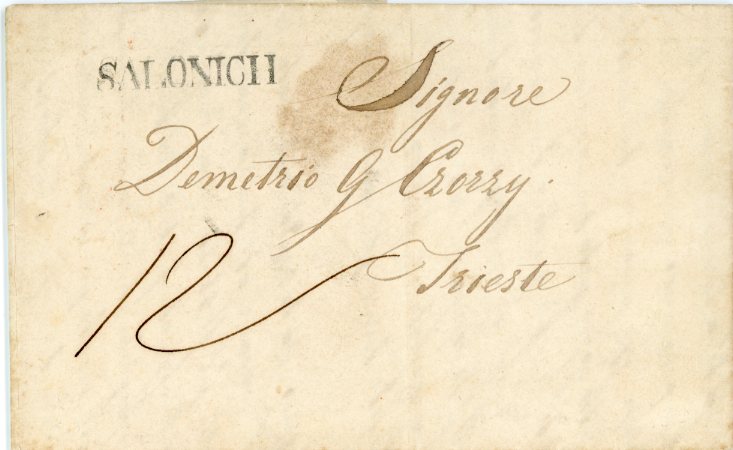 SALONICH
Signore
Demetrio G Czorzy.
12
Trieste